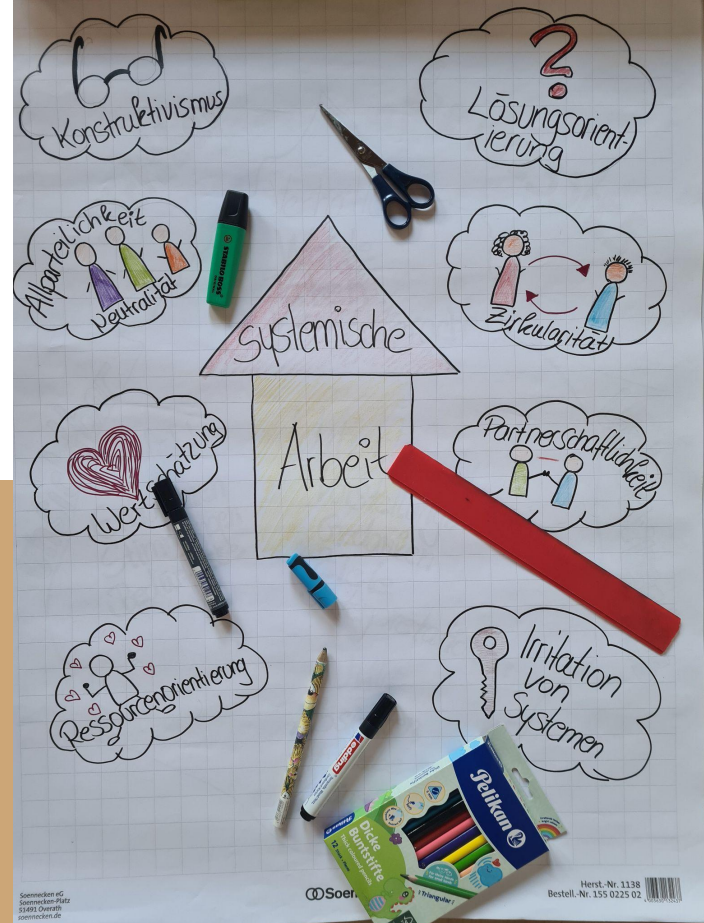 Konstruktivismus
Lösungsorient-
ierung
Allparteilichkeit
Neutralität
STABILO BOSS
Zirkularität
systemische
Arbeit
Wertschätzung
Partnerschaftlichkeit
Ressourcenorientierung
Irritation
von
Systemen
edding
Pelikan
Dicke
Buntstifte
Thick coloured pencils
Triangular
Soennecken eG
Soennecken-Platz
51491 Overath
soennecken.de
Soen
Herst.-Nr. 1138
Bestell.-Nr. 155 0225 02